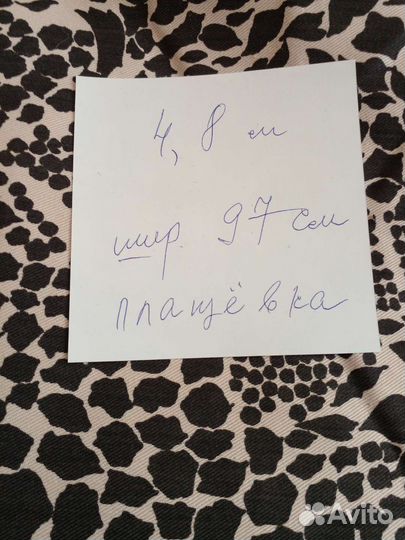 4,8 м
шир. 97 см
плащёвка
Avito